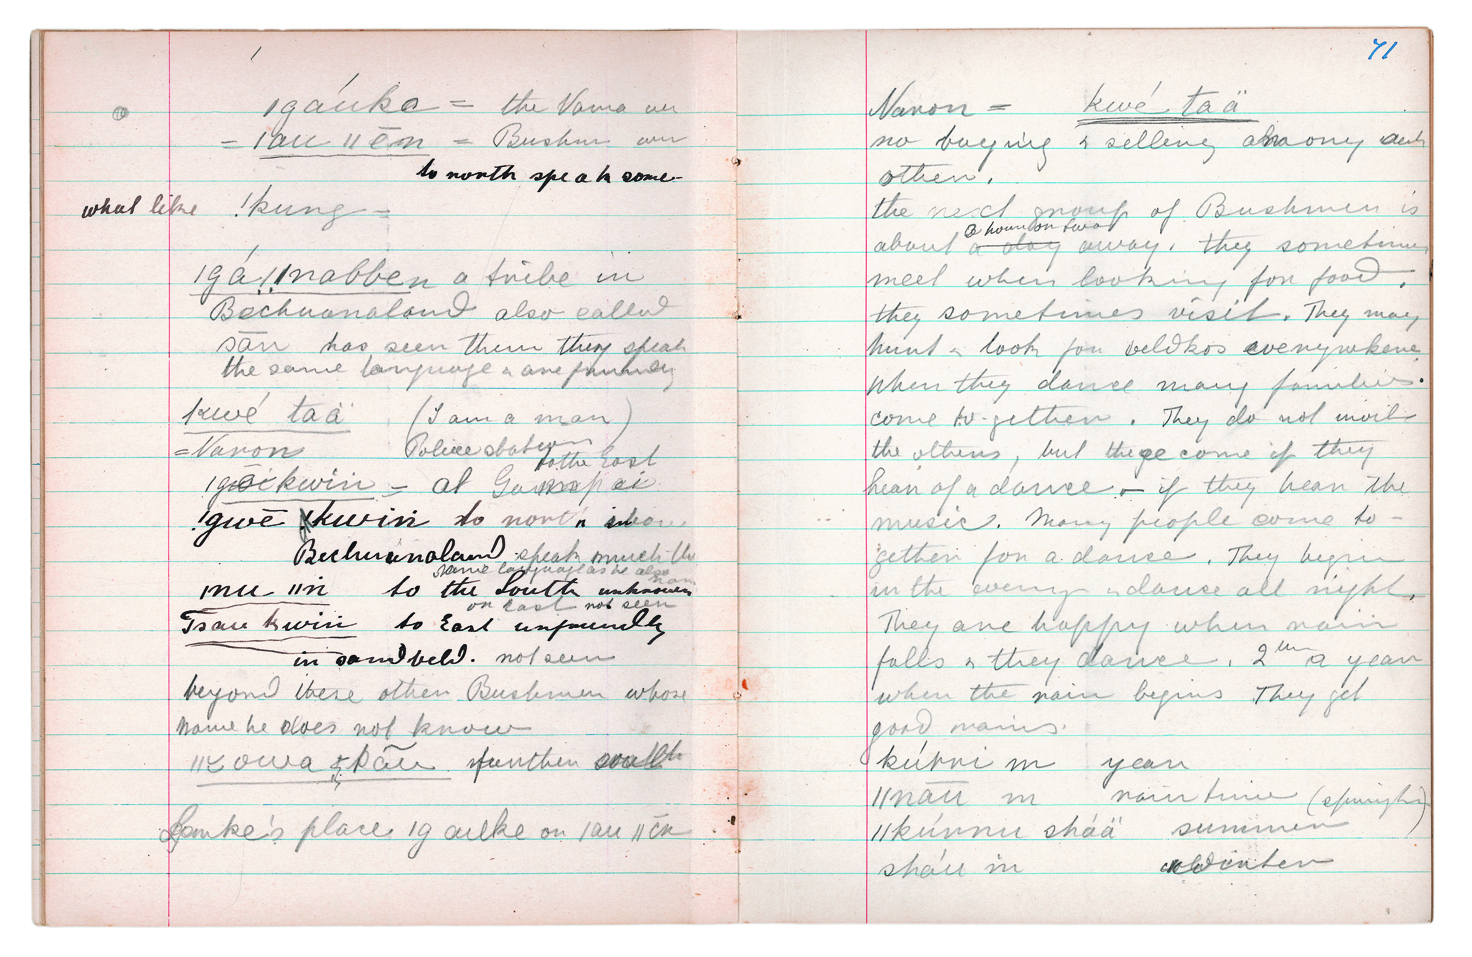 ǀgáuka = the Nama
= ǀau ǁēn = Bushm
to north speak some-
what like !kung =
ǀgá!ǀnabben a tribe in
Bechuanaland also called
sān has seen them they speak
the same language & are friendly
kwé taä (I am a man)
=Naron Police station
to the East
kwiń = at
!gwē ǀkwiń to north
Bechuanaland speak much the
same language as he also
ǀnu ǁin to the South unknown
or east not seen
Tsau kwiń to East unfriendly
in sandveld. not seen
beyond these other Bushmen whose
name he does not know
further south
place ǀgaulke or ǀau ǁēn
71
Naron = kwé taä
no buying & selling among each
other.
the next group of Bushmen is
a hour or two
about a day away. they sometimes
meet when looking for food.
they sometimes visit. They may
hunt & look for veldkos everywhere.
When they dance many families
come to-gether. They do not invite
the others, but these come if they
hear of a dance - if they hear the
music. Many people come to-
gether for a dance. They begin
in the evening & dance all night.
They are happy when rain
falls & they dance. 2 a year
when the rain begins They get
good rains.
kúrri m year
ǁnāu m rain time (spring)
ǁkúrru shaä summer
sháu m winter